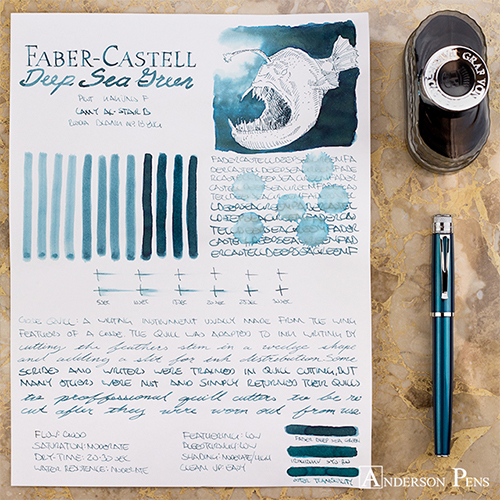 FABER-CASTELL
Deep Sea Green
LAMY AL-STAR B
FABERCASTELLDEEPSEAGREENFA
DERCASTELLDEEPSEAGREENFAB
ERCASTELLDEEPSEAGREENFABERCAS
TELLDEEPSEAGREENFABERCASTEL
LDEEPSEAGREENFABERCASTEL
LDEEPSEAGREENFABERCA
STELLDEEPSEAGREENFADER
CASTELLDEEPSEAGREENFABD
ERCASTELLDEEPSEAGREENF
5 SEC 10 SEC 15 SEC 20 SEC 25 SEC 30 SEC
QUILL: A WRITING INSTRUMENT USUALLY MADE FROM THE WING
FEATHERS OF A GOOSE. THE QUILL WAS ADAPTED TO INK WRITING BY
cutting the feathers stem in a wedge shape
and adding a slit for ink distribution. Some
SCRIBES AND WRITERS WERE TRAINED IN QUILL CUTTING, BUT
MANY OTHERS WERE NOT AND SIMPLY RETURNED THEIR QUILLS
to proffessional quill cutters to be re
cut after they were worn out from use
FLOW: GOOD
SATURATION: MODERATE
DRY-TIME: 20-30 SEC
WATER RESISTANCE: MODERATE
FEATHERING: LOW
BLEEDTHROUGH: LOW
SHADING: MODERATE/HIGH
CLEAN UP: EASY
FABER DEEP SEA GREEN
DIAMINE TRANQUILITY
ANDERSON PENS